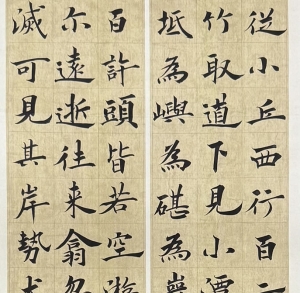 從小丘西行百二
竹取道下見小潭
坻為嶼為碪為巖
百許頭皆若空遊
尓遠逝往来翕忽
滅可見其岸勢犬